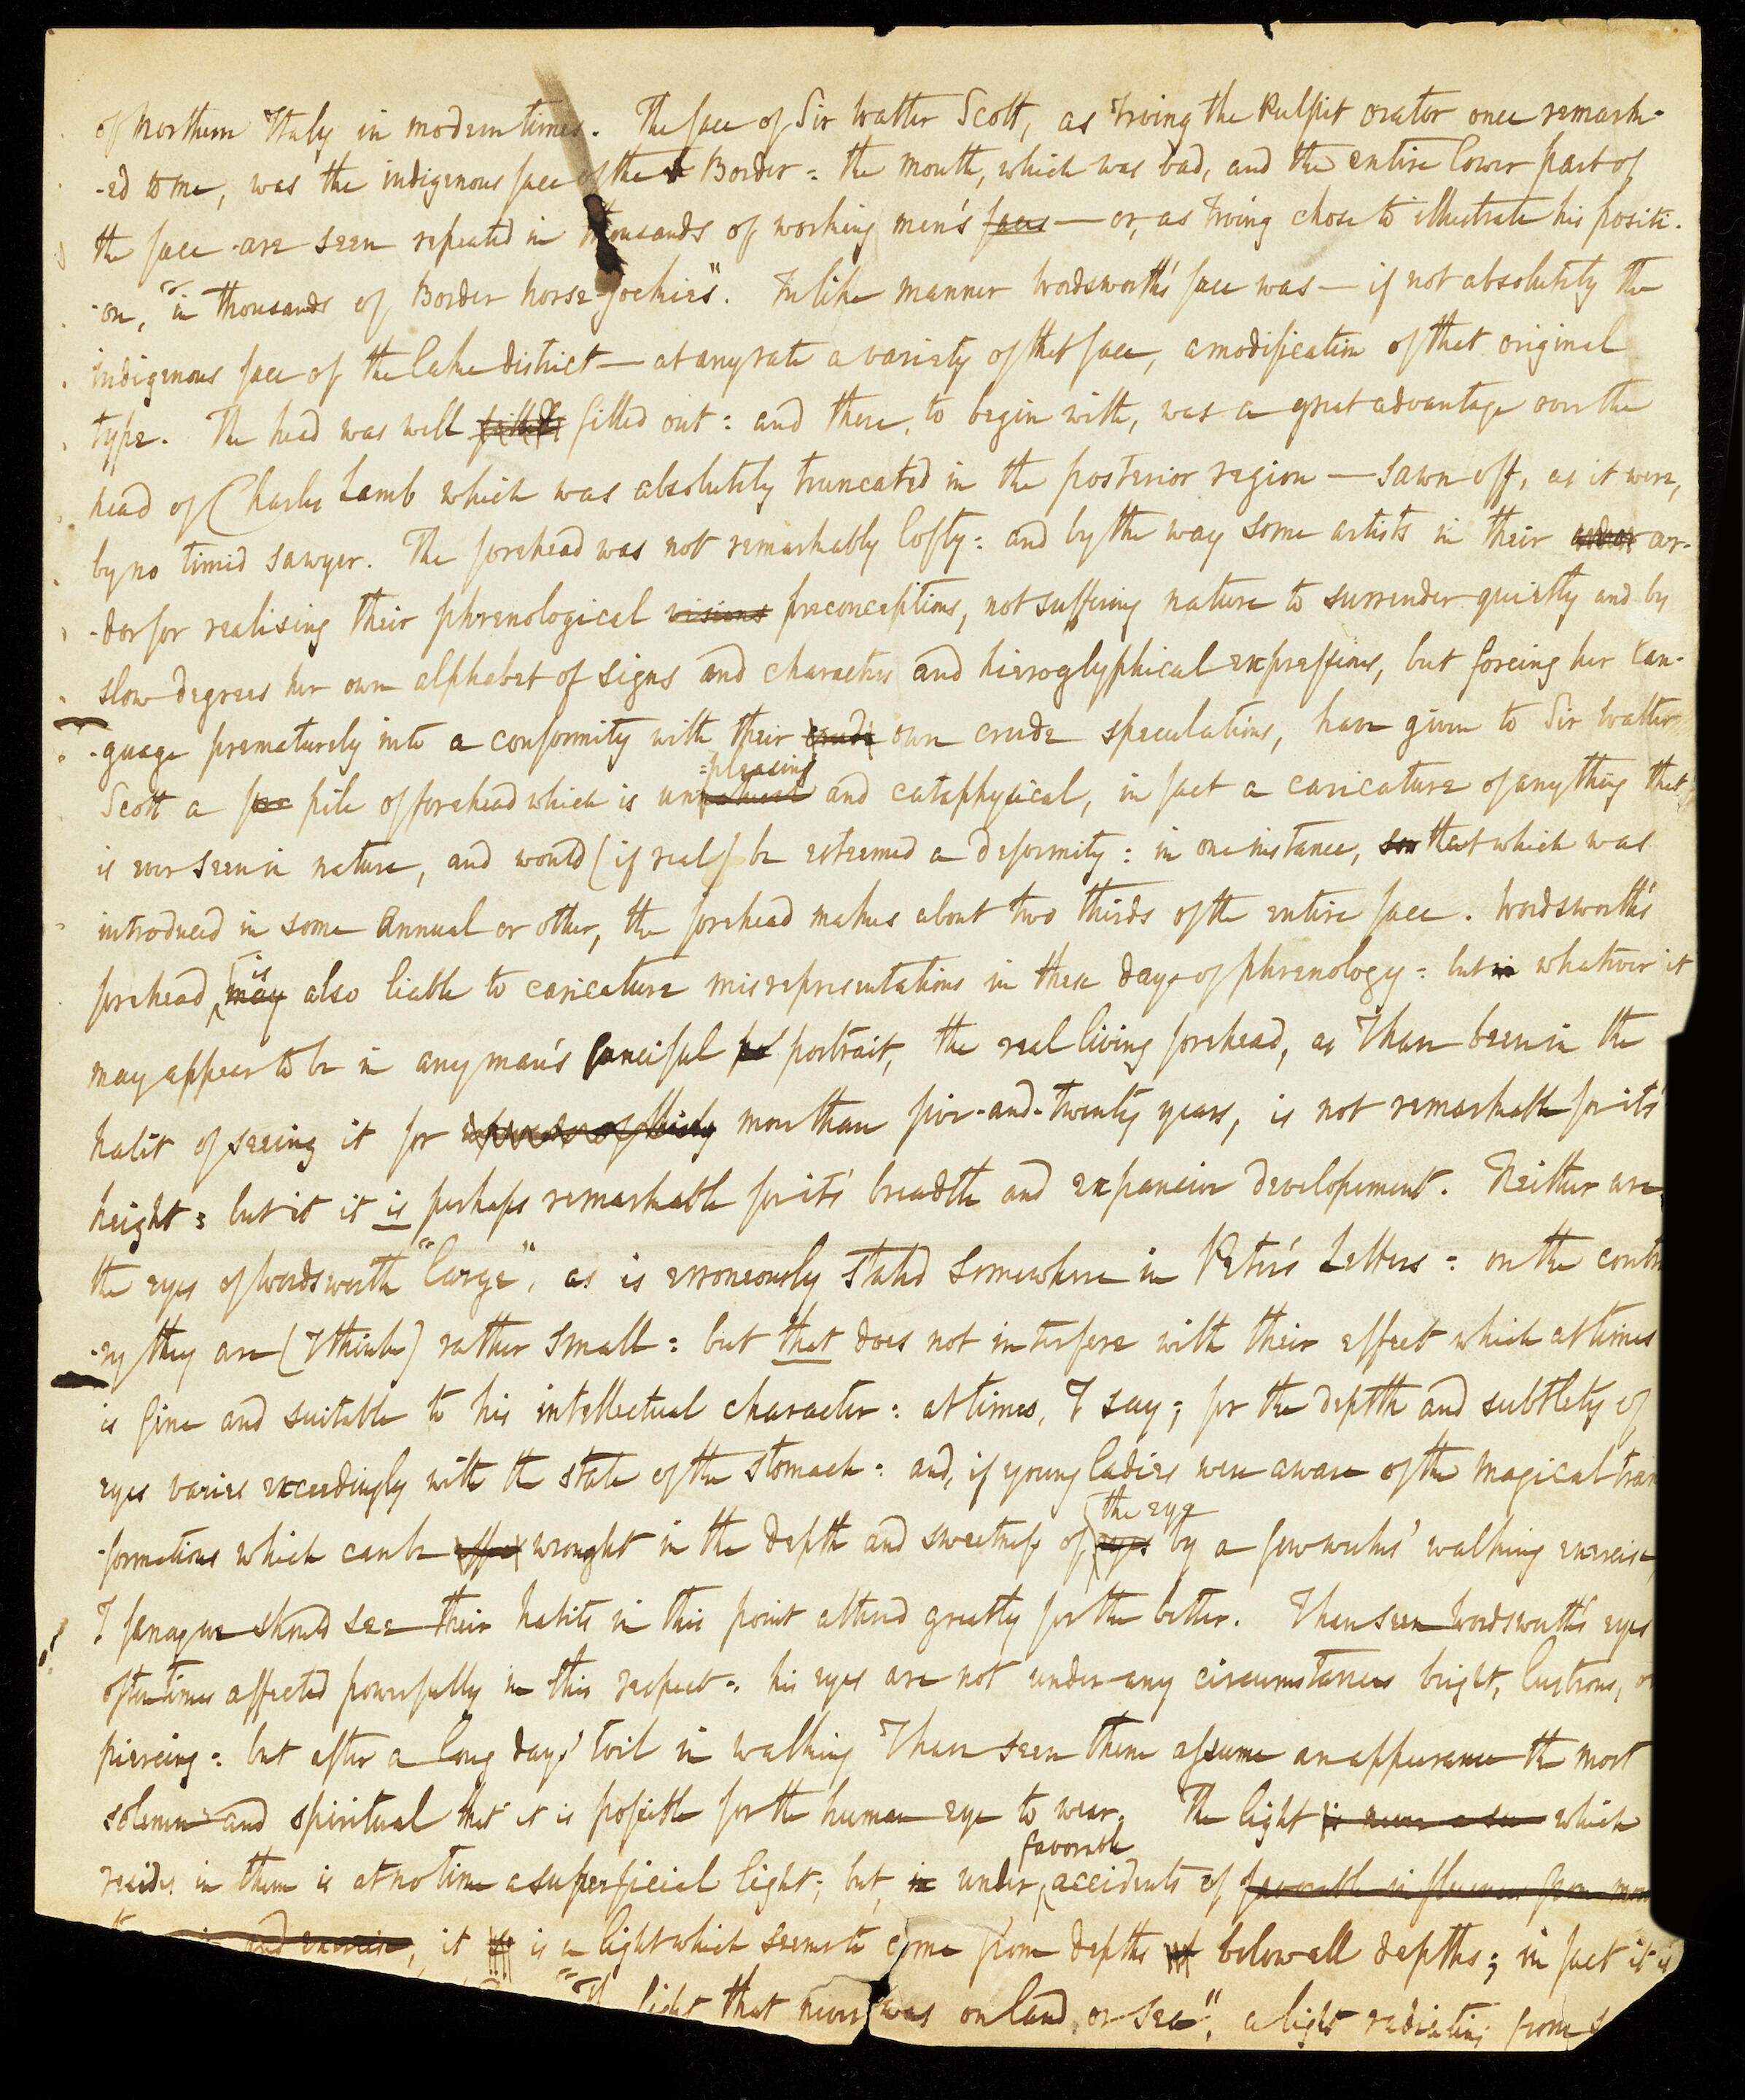 of Northern Italy in modern times. The face of Sir Walter Scott, as Irving the Pulpit orator once remark-
-ed to me, was the indigenous face of the Border: the mouth, which was bad, and the entire lower part of
the face are seen repeated in thousands of working men's faces — or, as Irving chose to illustrate his positi-
-on, "in thousands of Border horse-jockies". In like manner Wordsworth's face was — if not absolutely the
indigenous face of the Lake district — at any rate a variety of that face, a modification of that original
type. The head was well filled filled out: and there, to begin with, was a great advantage over the
head of Charles Lamb which was absolutely truncated in the posterior region — sawn off, as it were,
by no timid sawyer. The forehead was not remarkably lofty: and by the way some artists in their ardor ar-
-dor for realising their phrenological visions preconceptions, not suffering nature to surrender quietly and by
slow degrees her own alphabet of signs and characters and hieroglyphical expressions, but forcing her lan-
-guage prematurely into a conformity with their crude own crude speculations, have given to Sir Walter
=pleasing
Scott a fore pile of forehead which is unnatural and cataphysical, in fact a caricature of anything that
is ever seen in nature, and would (if real) be esteemed a deformity: in one instance, that which was
introduced in some Annual or other, the forehead makes about two thirds of the entire face. Wordsworth's
is
forehead may also liable to caricature misrepresentations in these days of phrenology: but in whatever it
may appear to be in any man's fanciful po portrait, the real living forehead, as I have been in the
habit of seeing it for upwards of thirty more than five-and-twenty years, is not remarkable for its'
height: but it it is perhaps remarkable for its' breadth and expansive developement. Neither are
the eyes of Wordsworth "large", as is erroneously stated somewhere in Peter's Letters: on the contra
-ry they are (I think) rather small: but that does not interfere with their effect which at times
is fine and suitable to his intellectual character: at times, I say; for the depth and subtlety of
eyes varies exceedingly with the state of the stomach: and, if young ladies were aware of the magical trans
the eye
-formations which can be effec wrought in the depth and sweetness of eyes by a few weeks' walking exercise,
I fancy we should see their habits in this point altered greatly for the better. I have seen Wordsworth's eyes
oftentimes affected powerfully in this respect: his eyes are not under any circumstances bright, lustrous, or
piercing: but after a long day's toil in walking I have seen them assume an appearance the most
solemn and spiritual that it is possible for the human eye to wear. The light is never a su which
favorable
resides in them is at no time a superficial light; but, in under accidents of favorable influence from
and exercise, it is a light which seems to come from depths below all depths; in fact it is
"The light that never was on land or sea", a light radiating from